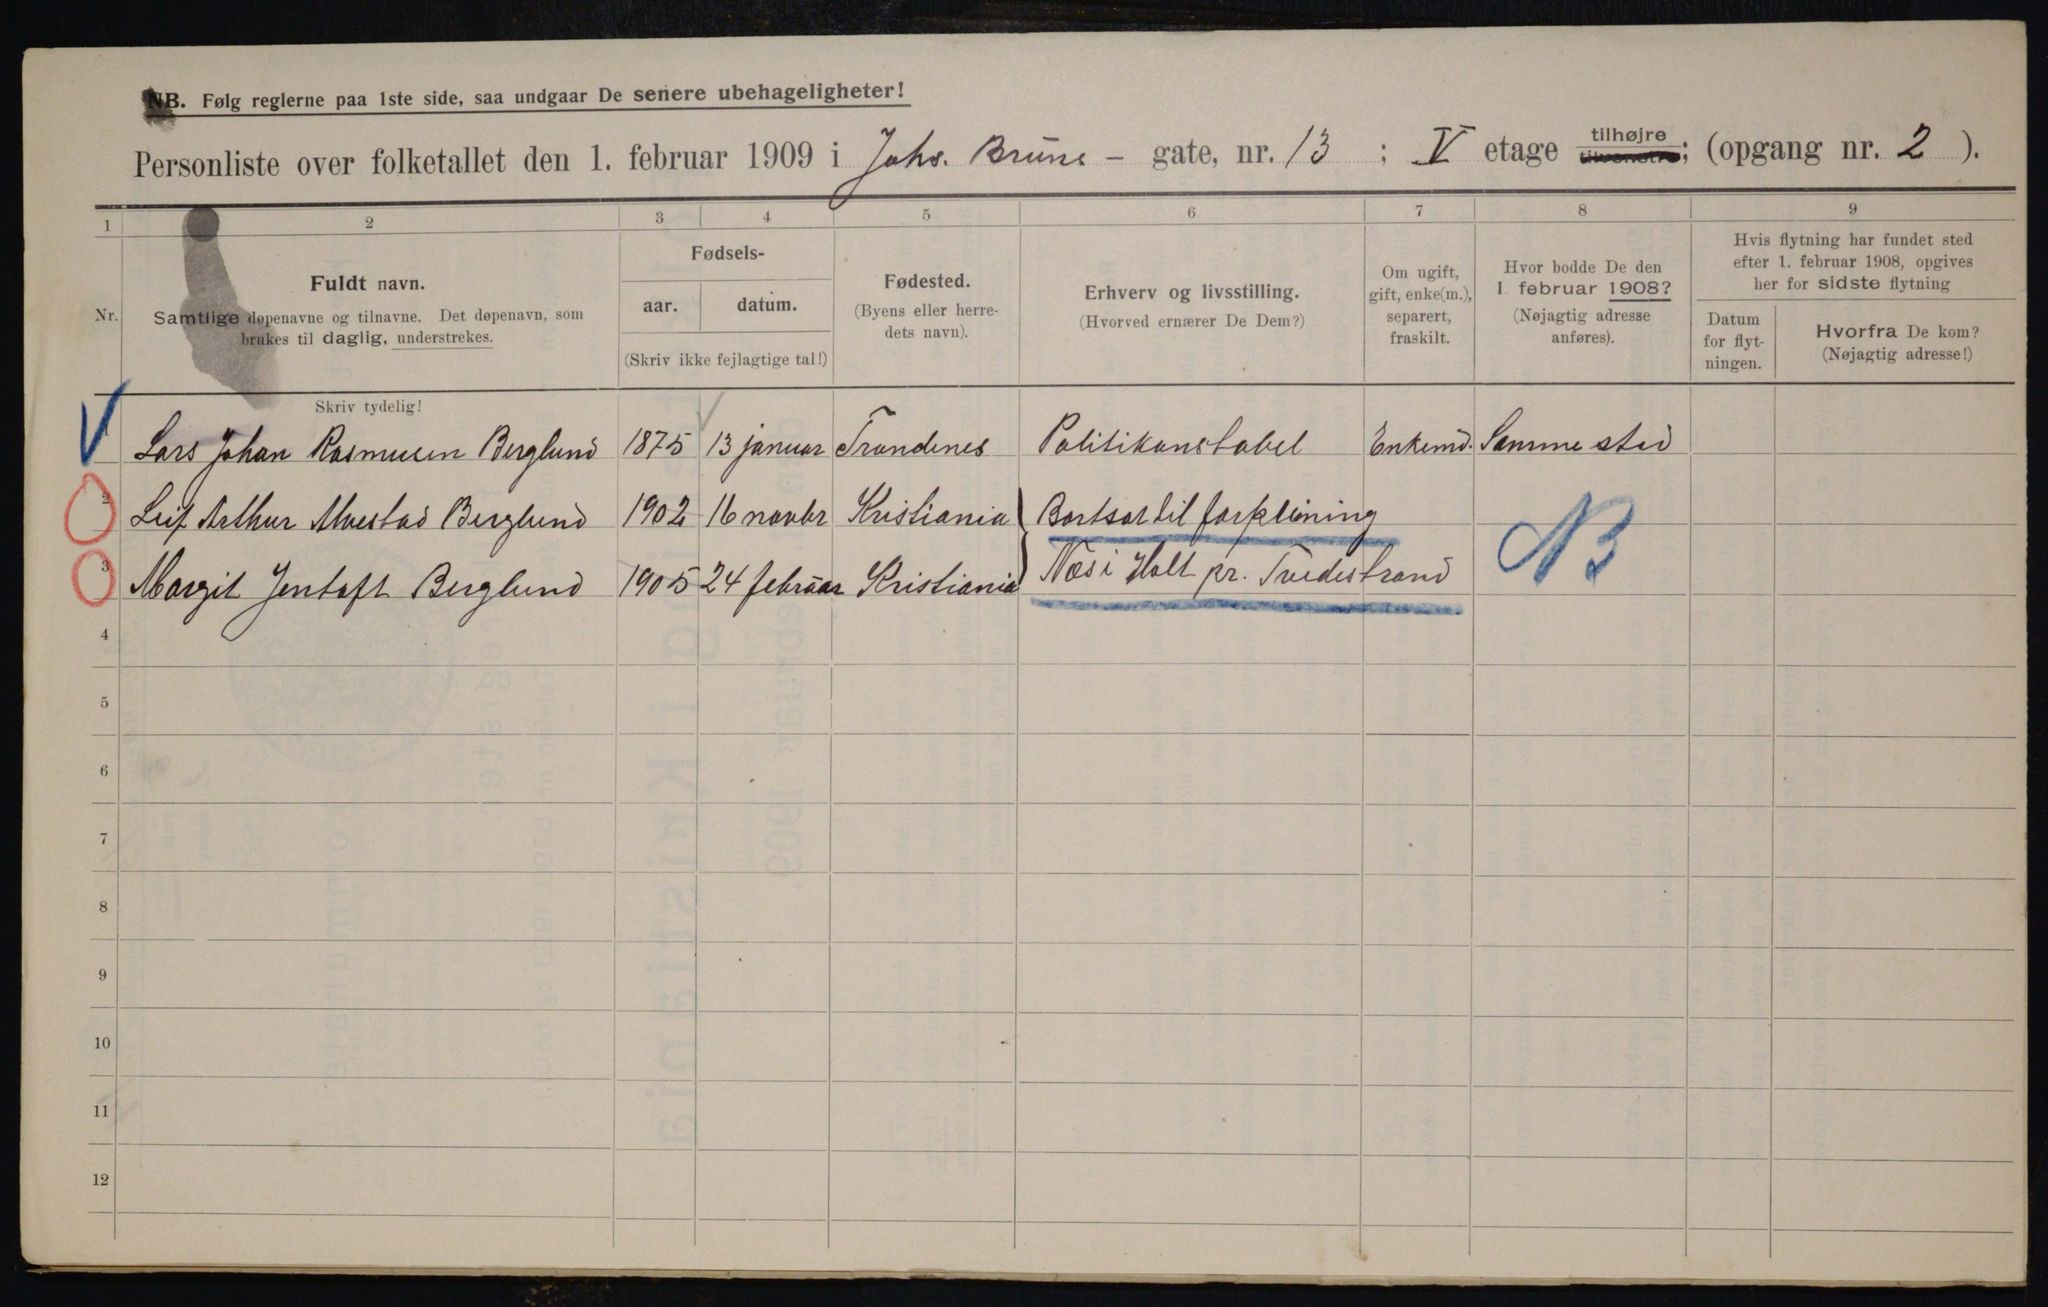 NB. Følg reglerne paa 1ste side, saa undgaar De senere ubehageligheter!
Personliste over folketallet den 1. februar 1909 i Johs. Bruns - gate, nr. 13 ; V etage tilhøjre tilvenstre; (opgang nr. 2 ).
1 2 3 4 5 6 7 8 9
Nr.
Fuldt navn.
Samtlige døpenavne og tilnavne. Det døpenavn, som
brukes til daglig, understrekes.
Skriv tydelig!
Fødsels-
aar. datum.
(Skriv ikke fejlagtige tal!)
Fødested.
(Byens eller herre-
dets navn).
Erhverv og livsstilling.
(Hvorved ernærer De Dem?)
Om ugift,
gift, enke(m.),
separert,
fraskilt.
Hvor bodde De den
1. februar 1908?
(Nøjagtig adresse
anføres).
Hvis flytning har fundet sted
efter 1. februar 1908, opgives
her for sidste flytning
Datum
for flyt-
ningen.
Hvorfra De kom?
(Nøjagtig adresse!)
Lars Johan Rasmusen Berglund 1875 13 januar Trondenes Politikonstabel Enkemd. Samme sted
2 Leif Arthur Alvestad Berglund 1902 16 novbr Kristiania Bortsat til forpleining
3 Margit Jentoft Berglund 1905 24 februar Kristiania Næs i Holt pr. Tvedestrand
NB
4
5
6
7
8
9
10
11
12